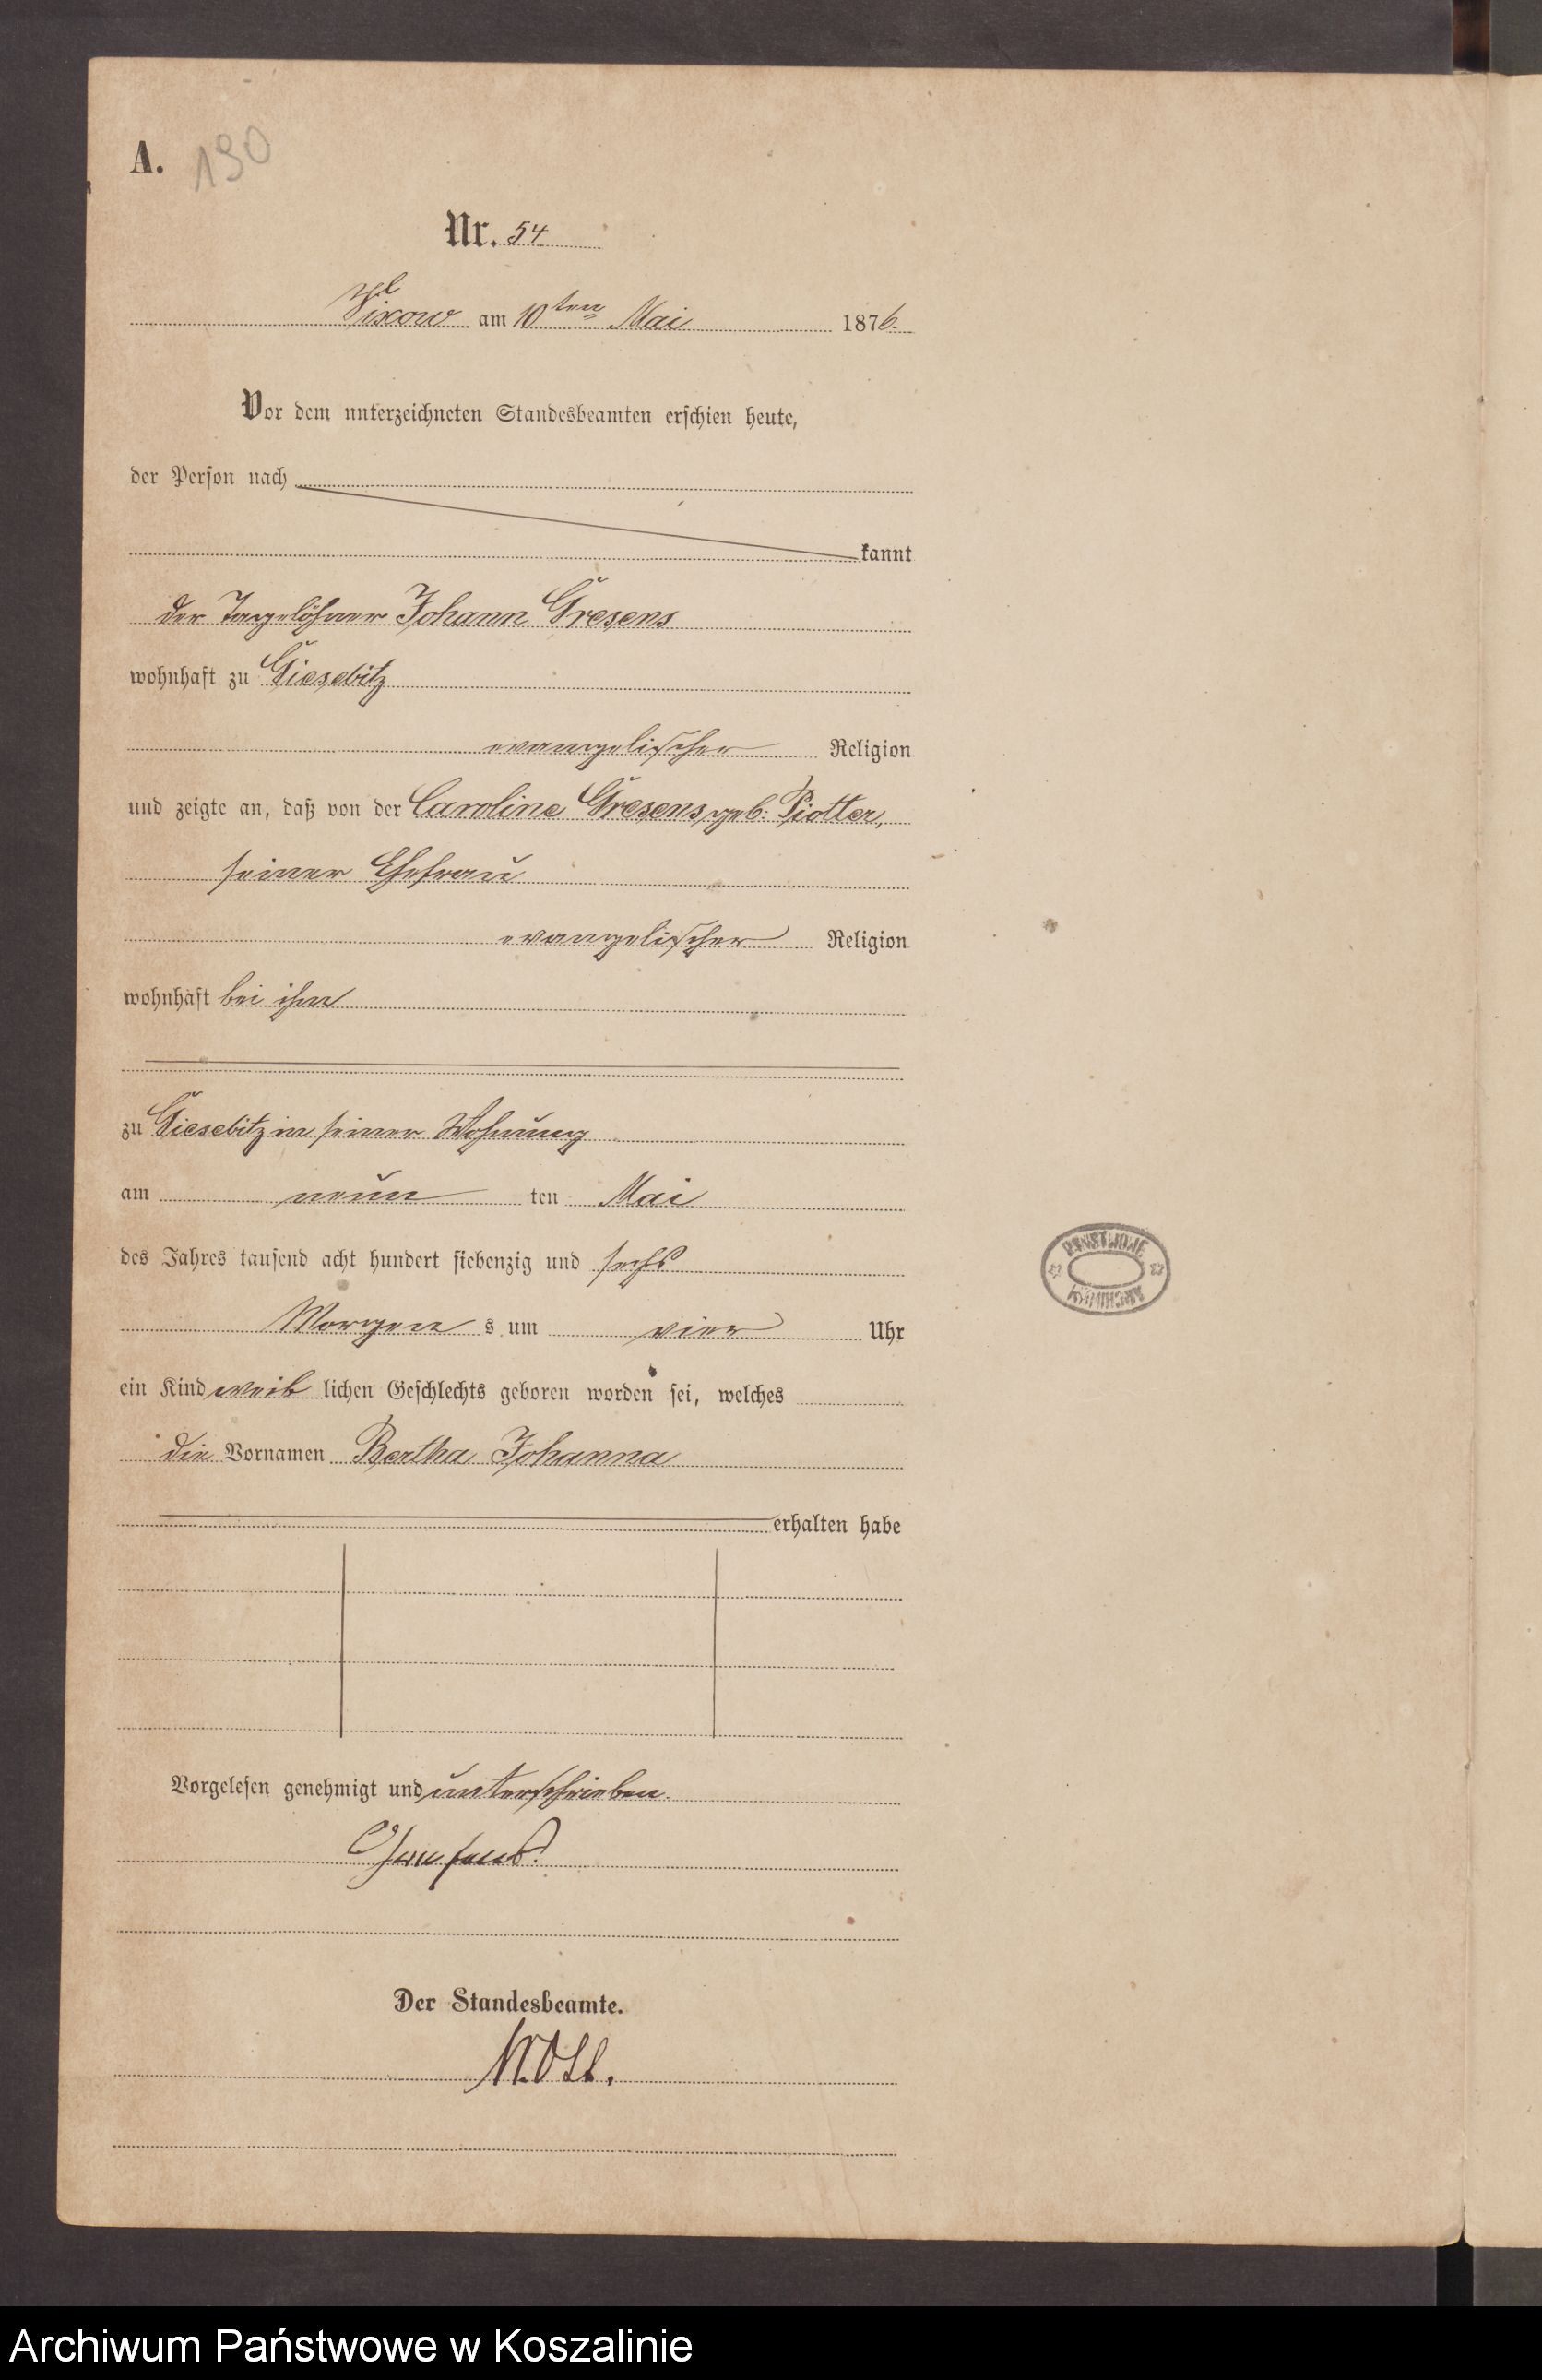 A. 190
Nr. 54
Vixow am 10ten Mai 1876.
Vor dem unterzeichneten Standesbeamten erschien heute,
der Person nach
kannt
der Tagelöhner Johann Gresens
wohnhaft zu Giesebitz
evangelischer Religion
und zeigte an, daß von der Caroline Gresens geb: Piotter,
seiner Ehefrau
evangelischer Religion
wohnhaft bei ihm
zu Giesebitz in seiner Wohnung
am neun ten Mai
des Jahres tausend acht hundert siebenzig und sechs
Morgen s um vier Uhr
ein Kind weib lichen Geschlechts geboren worden sei, welches
die Vornamen Bertha Johanna
erhalten habe
Vorgelesen genehmigt und unterschrieben.
Der Standesbeamte.
Archiwum Państwowe w Koszalinie